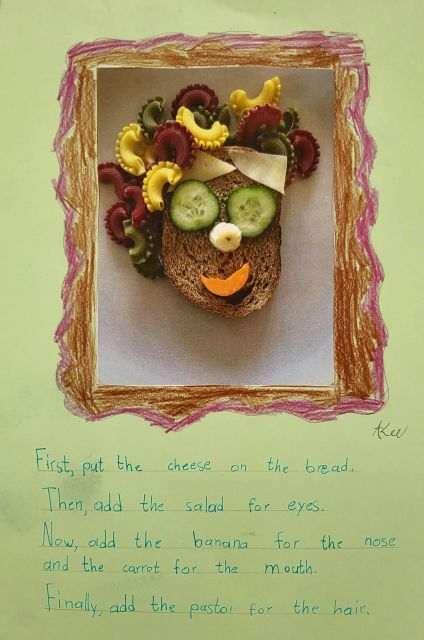 AKee
First, put the cheese on the bread.
Then, add the salad for eyes.
Now, add the banana for the nose
and the carrot for the mouth.
Finally, add the pasta for the hair.